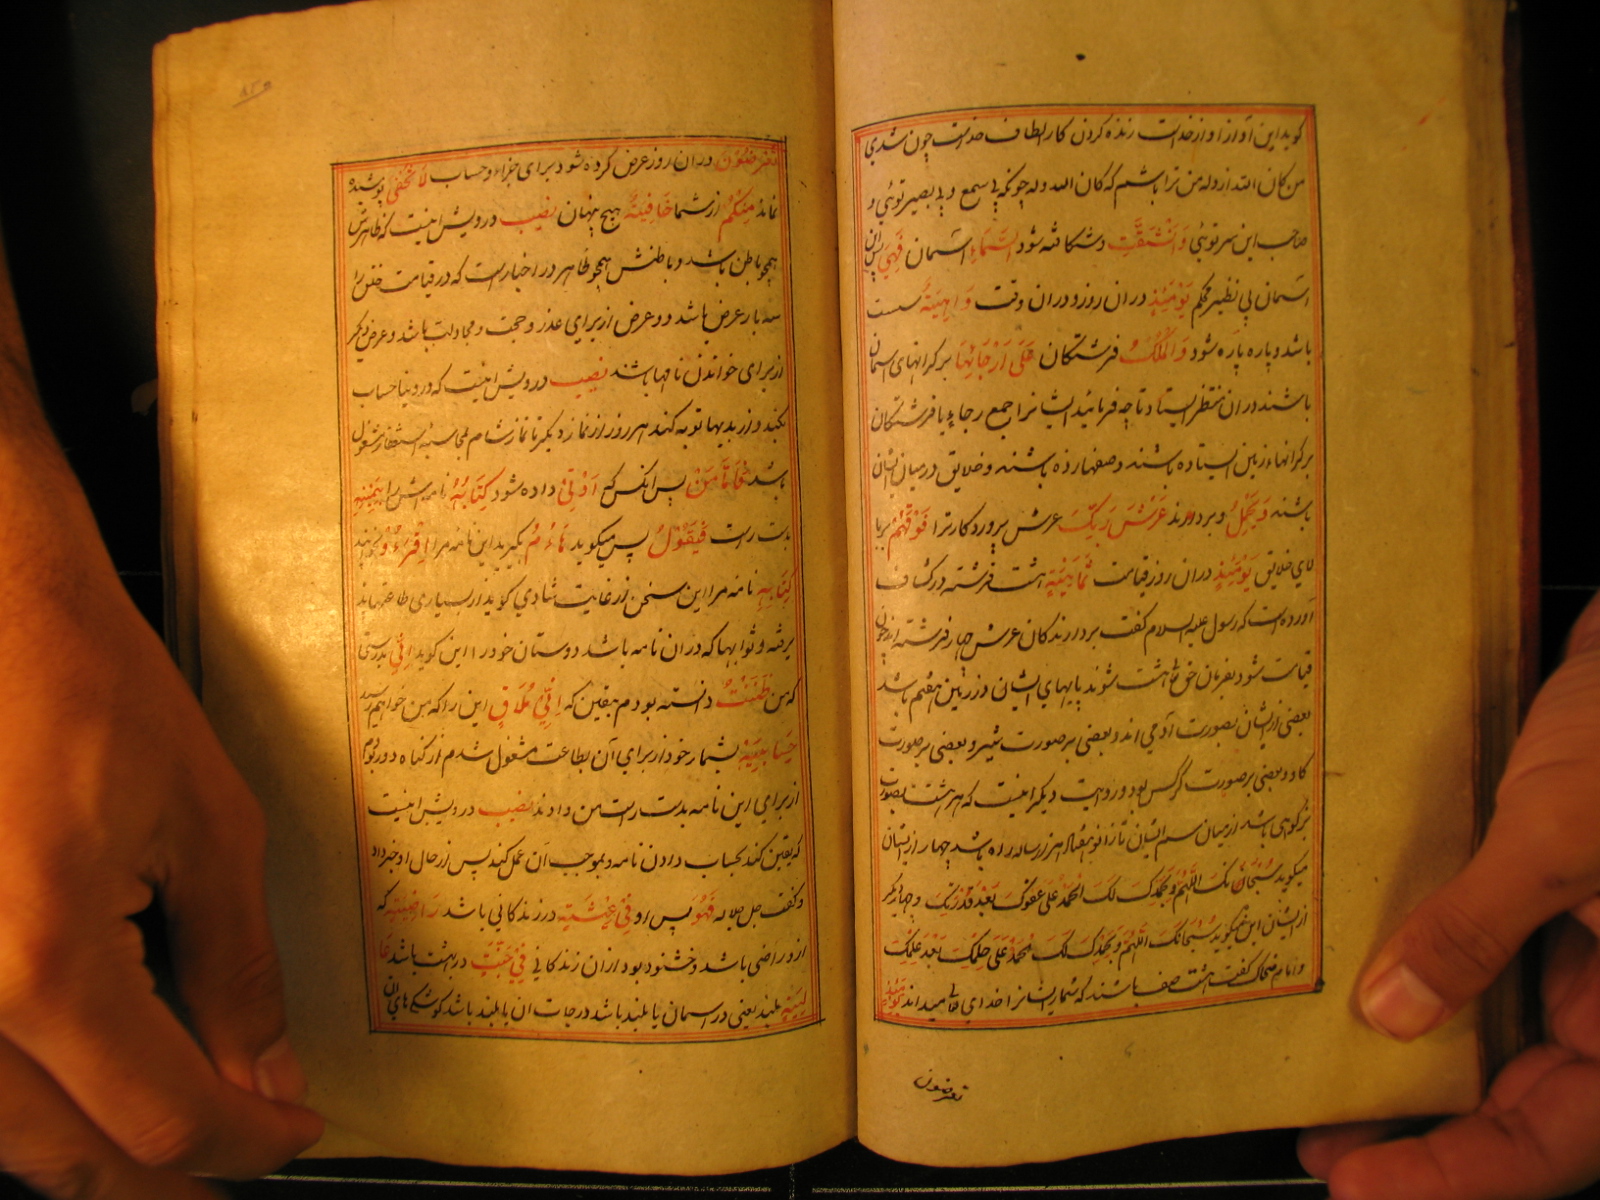 كويد اين آواز او از خداست زنده كردن كار الطاف خداست چون شدى
من كان الله از وله من ترا باشم كه كان الله وله چونكه بى سمع و بى بصير توئي و
صاحب اين سر توئي وَانْشَقَّتِ و شكافته شود السَّمَاءُ آسمان فَهِيَ پس ان
آسمان بي نظير محكم يَوْمَئِذٍ در ان روز و در ان وقت وَاهِيَةٌ سست
باشد و پاره پاره شود وَالْمَلَكُ فرشتكان عَلَى اَرْجَائِهَا بر كرانهاى آسمان
باشند در ان منتظر ايستاد تا چه فرمائيد ايشانرا جمع رجاء يا فرشتكان
بر كرانهاء زمين ايستاده باشند و صفها زده باشند و خلايق در ميان ايشان
باشند وَيَحْمِلُ و بردارند عَرْشَ رَبِّكَ عرش پروردكار ترا فَوْقَهُمْ بر با
لاي خلايق يَوْمَئِذٍ در ان روز قيامت ثَمَانِيَةٌ هشت فرشته در كشاف
آورده است كه رسول عليه السلام كفت بردارندكان عرش چهار فرشته اند چون
قيامت شود بفرمان حق تعالى هشت شوند پايهاي ايشان در زمين هفتم باشد
بعضي از ايشان بصورت آدمي اند و بعضى بر صورت شير و بعضى بر صورت
كاو و بعضى بر صورت كركس بود و روايت ديكر اينست كه هر هشت بصورت
بز كوهى باشد از ميان سم ايشان تا زانو هفتاد هزار ساله راه باشد چهار از ايشان
ميكويد سُبْحَانَكَ اللّهُمَّ وَبِحَمْدِكَ لَكَ الْحَمْدُ عَلَى عَفْوِكَ بَعْدَ قُدْرَتِكَ و چهار ديكر
از ايشان اين ميكويد سُبْحَانَكَ اللّهُمَّ وَبِحَمْدِكَ لَكَ الْحَمْدُ عَلَى حِلْمِكَ بَعْدَ عِلْمِكَ
و امام ضحاك كفت هشت صف باشند كه شمار ايشانرا خداي تعالى ميداند يَوْمَئِذٍ
تعرضون
تُعْرَضُونَ در ان روز عرض كرده شود براى جزاء و حساب لَا تَخْفَى پوشيده
نماند مِنْكُمْ از شما خَافِيَةٌ هيچ پنهان نصيب درويش اينست كه ظاهرش
همچو باطن باشد و باطنش همچو ظاهر در اخبار است كه در قيامت خلق را
سه بار عرض باشد دو عرض از براي عذر و حجت و مجادلت باشد و عرض ديكر
از براى خواندن نامها باشند نصيب درويش اينست كه در دنيا حساب
بكند و از بديها توبه كند هر روز از نماز ديكر تا نماز شام بمحاسبه استغفار مشغول
باشد فَاَمَّا مَنْ پس انكس كه اُوتِيَ داده شود كِتَابَهُ نامه اش را بِيَمِينِهِ
بدست راست فَيَقُولُ پس ميكويد هَاؤُمُ بكيريد اين نامه مرا اقْرَءُوا بخوانيد
كِتَابِيَهْ نامه مرا اين سخن از غايت شادي كويد از بسياري طاعتها بد
يرفته و ثوابها كه در ان نامه باشد دوستان خود را اين كويد اِنِّي بدرستى
كه من ظَنَنْتُ دانسته بودم بيقين كه اَنِّي مُلَاقٍ اين را كه من خواهم رسيد
حِسَابِيَهْ بشمار خود از براي آن بطاعت مشغول شدم از كناه دور بودم
از براي اين نامه بدست راست من دادند نصيب درويش اينست
كه يقين كند بحساب دادن نامه و بموجب آن عمل كند پس از حال او خبر داد
و كفت جل جلاله فَهُوَ پس او فِي عِيشَةٍ در زندكانى باشد رَاضِيَةٍ كه
از و راضى باشد و خشنود بود از ان زندكانى فِي جَنَّةٍ در بهشت باشد عَا
لِيَةٍ بلند يعنى در اسمان يا بلند باشد درجات ان يا بلند باشد كوشكهاي ان